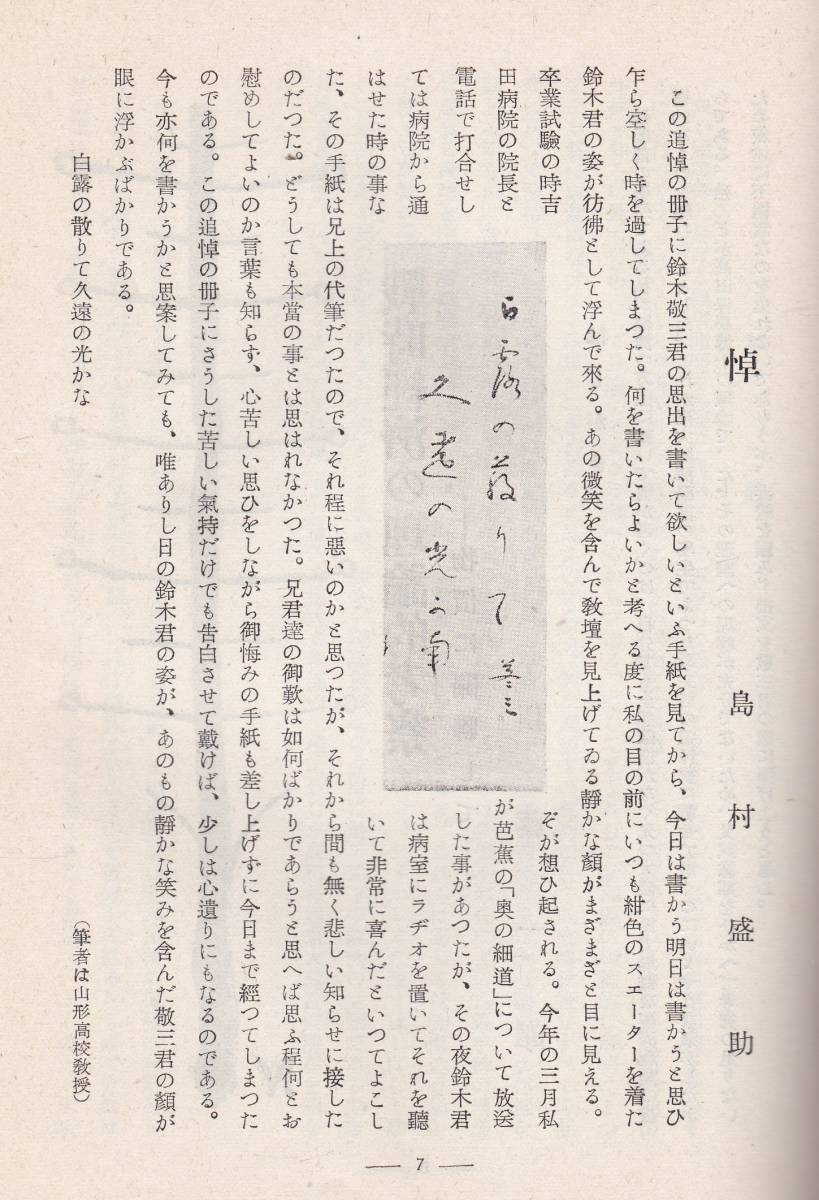 悼
島村盛助
この追悼の冊子に鈴木敬三君の思出を書いて欲しいといふ手紙を見てから、今日は書かう明日は書かうと思ひ
乍ら空しく時を過してしまつた。何を書いたらよいかと考へる度に私の目の前にいつも紺色のスエーターを着た
鈴木君の姿が彷彿として浮んで來る。あの微笑を含んで敎壇を見上げてゐる靜かな顏がまざまざと目に見える。
卒業試驗の時吉
田病院の院長と
電話で打合せし
ては病院から通
はせた時の事な
白露の散りて
久遠の光可南
ぞが想ひ起される。今年の三月私
が芭蕉の「奥の細道」について放送
した事があつたが、その夜鈴木君
は病室にラヂオを置いてそれを聽
いて非常に喜んだといつてよこし
た、その手紙は兄上の代筆だつたので、それ程に惡いのかと思つたが、それから間も無く悲しい知らせに接した
のだつた。どうしても本當の事とは思はれなかつた。兄君達の御歎は如何ばかりであらうと思へば思ふ程何とお
慰めしてよいのか言葉も知らず、心苦しい思ひをしながら御悔みの手紙も差し上げずに今日まで經つてしまつた
のである。この追悼の冊子にさうした苦しい氣持だけでも告白させて戴けば、少しは心遣りにもなるのである。
今も亦何を書かうかと思案してみても、唯ありし日の鈴木君の姿が、あのもの靜かな笑みを含んだ敬三君の顏が
眼に浮かぶばかりである。
白露の散りて久遠の光かな
（筆者は山形高校敎授）
— 7 —